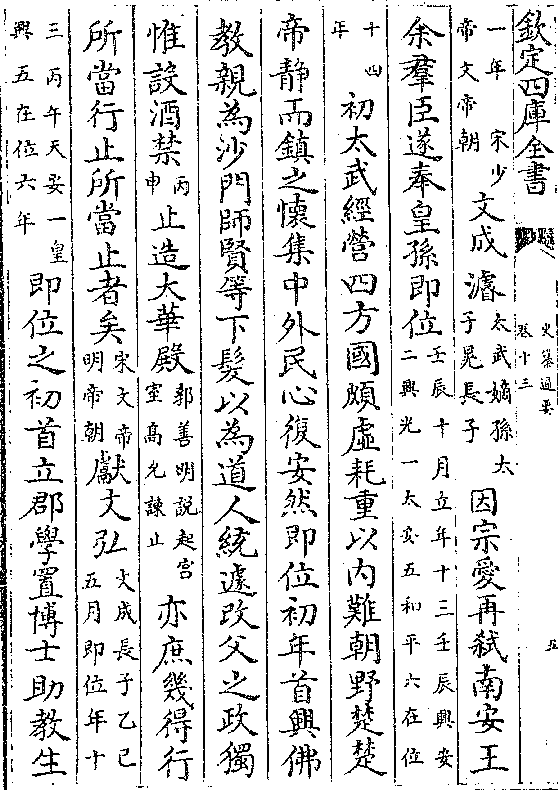 欽定四庫全書
史纂通要
卷十三
五
一年　宋少帝文帝朝　文成濬　太武嫡孫太子晃長子　因宗愛再弑南安王
余羣臣遂奉皇孫即位　壬辰十月立年十三壬辰興安二興光一太安五和平六在位
十四年　初太武經營四方國頗虛耗重以内難朝野楚楚
帝静而鎮之懷集中外民心復安然即位初年首興佛
教親為沙門師賢等下髮以為道人統遽改父之政獨
惟設酒禁　丙申　止造大華殿　郭善明說起宫室高允諫止　亦庶幾得行
所當行止所當止者矣　宋文帝明帝朝　獻文弘　文成長子乙巳五月即位年十
三丙午天安一皇興五在位六年　即位之初首立郡學置博士助教生